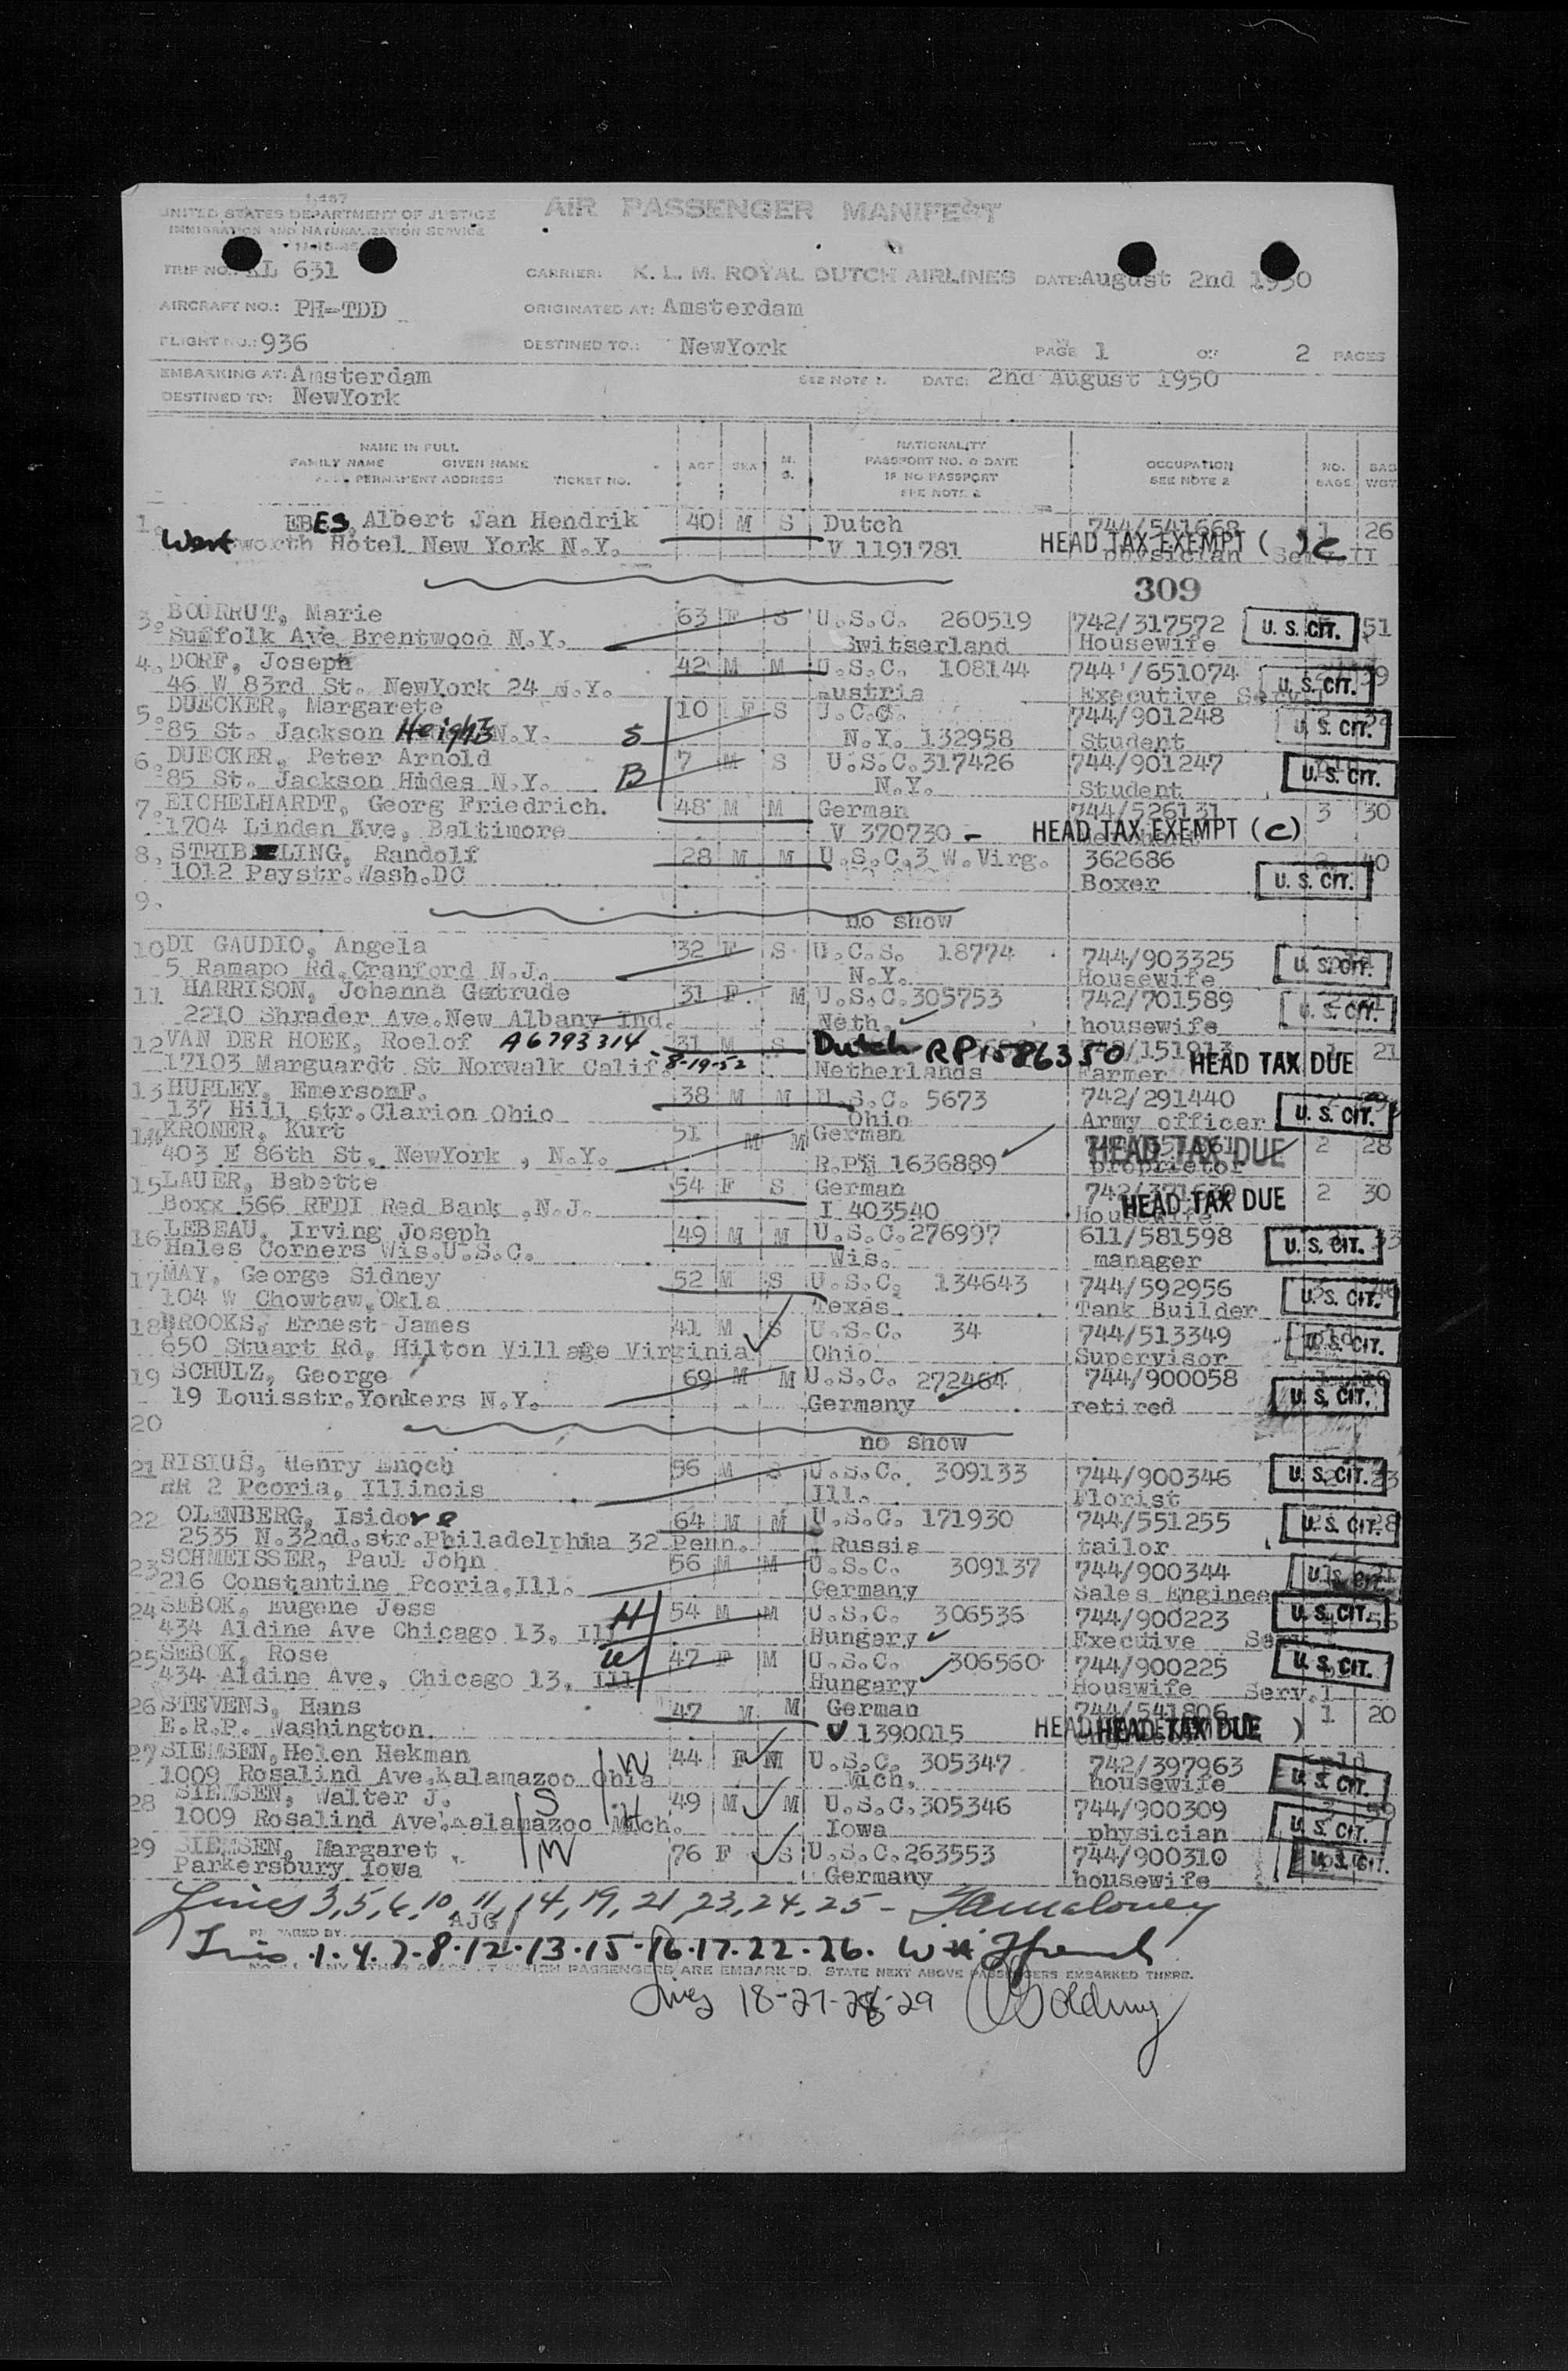 1-467
UNITED STATES DEPARTMENT OF JUSTICE
IMMIGRATION AND NATURALIZATION SERVICE
AIR PASSENGER MANIFEST
TRIP NO.: KL 631 CARRIER: K. L. M. ROYAL DUTCH AIRLINES DATE: August 2nd 1950
AIRCRAFT NO.: PH-TDD ORIGINATED AT: Amsterdam
FLIGHT NO.: 936 DESTINED TO: NewYork PAGE 1 OF 2 PAGES
EMBARKING AT: Amsterdam SEE NOTE 1. DATE: 2nd August 1950
DESTINED TO: NewYork
NAME IN FULL
FAMILY NAME GIVEN NAME
PERMANENT ADDRESS TICKET NO.
AGE SEX M. S.
NATIONALITY
PASSPORT NO. & DATE
IF NO PASSPORT
SEE NOTE 2
OCCUPATION
SEE NOTE 2
NO. BAGS BAG WGT
1. EBES, Albert Jan Hendrik 40 M S Dutch 744/541668 1 26
Wentworth Hotel New York N.Y. V 1191781 physician HEAD TAX EXEMPT ( ) C
309
3. BOURRUT, Marie 63 F S U.S.C. 260519 742/317572 U. S. CIT. 51
Suffolk Ave Brentwood N.Y. Switserland Housewife
4. DORF, Joseph 42 M M U.S.C. 108144 744'/651074 39
46 W 83rd St. NewYork 24 N.Y. Austria Executive U. S. CIT.
5. DUECKER, Margarete 10 F S U.C.S. 744/901248
85 St. Jackson Heights N.Y. S N.Y. 132958 Student U. S. CIT.
6. DUECKER, Peter Arnold 7 M S U.S.C.317426 744/901247
85 St. Jackson Hides N.Y. B N.Y. Student U. S. CIT.
7. EICHELHARDT, Georg Friedrich. 48 M M German 744/526131 3 30
1704 Linden Ave, Baltimore V 370730 - HEAD TAX EXEMPT (C)
8. STRIBLING, Randolf 28 M M U.S.C.3 W.Virg. 362686 40
1012 Paystr.Wash.DC Boxer U. S. CIT.
9.
no show
10 DI GAUDIO, Angela 32 F S U.C.S. 18774 744/903325
5 Ramapo Rd.Cranford N.J. N.Y. Housewife U. S. CIT.
11 HARRISON, Johanna Gertrude 31 F. M U.S.C.305753 742/701589
2210 Shrader Ave.New Albany Ind. Neth. housewife U. S. CIT.
12 VAN DER HOEK, Roelof A6793314 31 M S Dutch RP1586350 /151913 21
17103 Marguardt St Norwalk Calif. 8-19-52 Netherlands Farmer HEAD TAX DUE
13 HURLEY, EmersonF. 38 M M U.S.C. 5673 742/291440
137 Hill str.Clarion Ohio Ohio Army officer U. S. CIT.
14 KRONER, Kurt 51 M M German HEAD TAX DUE 2 28
403 E 86th St. NewYork , N.Y. R.P. 1636889 proprietor
15 LAUER, Babette 54 F S German HEAD TAX DUE 2 30
Boxx 566 RFDI Red Bank .N.J. I 403540 Housewife
16 LEBEAU, Irving Joseph 49 M M U.S.C.276997 611/581598
Hales Corners Wis.U.S.C. Wis. manager U. S. CIT.
17 MAY, George Sidney 52 M S U.S.C. 134643 744/592956
104 W Chowtaw,Okla Texas Tank Builder U. S. CIT.
18 BROOKS, Ernest James 41 M S U.S.C. 34 744/513349
650 Stuart Rd, Hilton Village Virginia Ohio Supervisor U. S. CIT.
19 SCHULZ, George 69 M M U.S.C. 272464 744/900058
19 Louisstr.Yonkers N.Y. Germany retired U. S. CIT.
20
no show
21 RISIUS, Henry Enoch 56 M S U.S.C. 309133 744/900346
RR 2 Peoria, Illinois Ill. Florist U. S. CIT.
22 OLENBERG, Isidore 64 M M U.S.C. 171930 744/551255 28
2535 N.32nd.str.Philadelphia 32 Penn. Russia tailor U. S. CIT.
23 SCHMEISSER, Paul John 56 M M U.S.C. 309137 744/900344
216 Constantine Peoria,Ill. Germany Sales Enginee U. S. CIT.
24 SEBOK, Eugene Jess H 54 M M U.S.C. 306536 744/900223
434 Aldine Ave Chicago 13, Ill Hungary Executive U. S. CIT.
25 SEBOK, Rose W 47 F M U.S.C. 306560 744/900225
434 Aldine Ave, Chicago 13, Ill Hungary Houswife Serv.1 U. S. CIT.
26 STEVENS, Hans 47 M M German 744/541806 1 20
E.R.P. Washington. V 1390015 HEAD TAX DUE )
27 SIEMSEN,Helen Hekman W 44 F M U.S.C. 305347 742/397963
1009 Rosalind Ave.Kalamazoo Ohio Mich. housewife U. S. CIT.
28 SIEMSEN, Walter J. S H 49 M M U.S.C.305346 744/900309 59
1009 Rosalind Ave.Kalamazoo Mich. Iowa physician U. S. CIT.
29 SIEMSEN, Margaret M 76 F S U.S.C.263553 744/900310
Parkersbury Iowa Germany housewife U. S. CIT.
Lines 3, 5, 6, 10, 11, 14, 19, 21, 23, 24, 25 -
PREPARED BY AJG
Lines 1. 4. 7. 8. 12. 13. 15. 16. 17. 22. 26.
PASSENGERS ARE EMBARKED. STATE NEXT ABOVE PASSENGERS EMBARKED THERE.
Lines 18-27-28-29 Golding